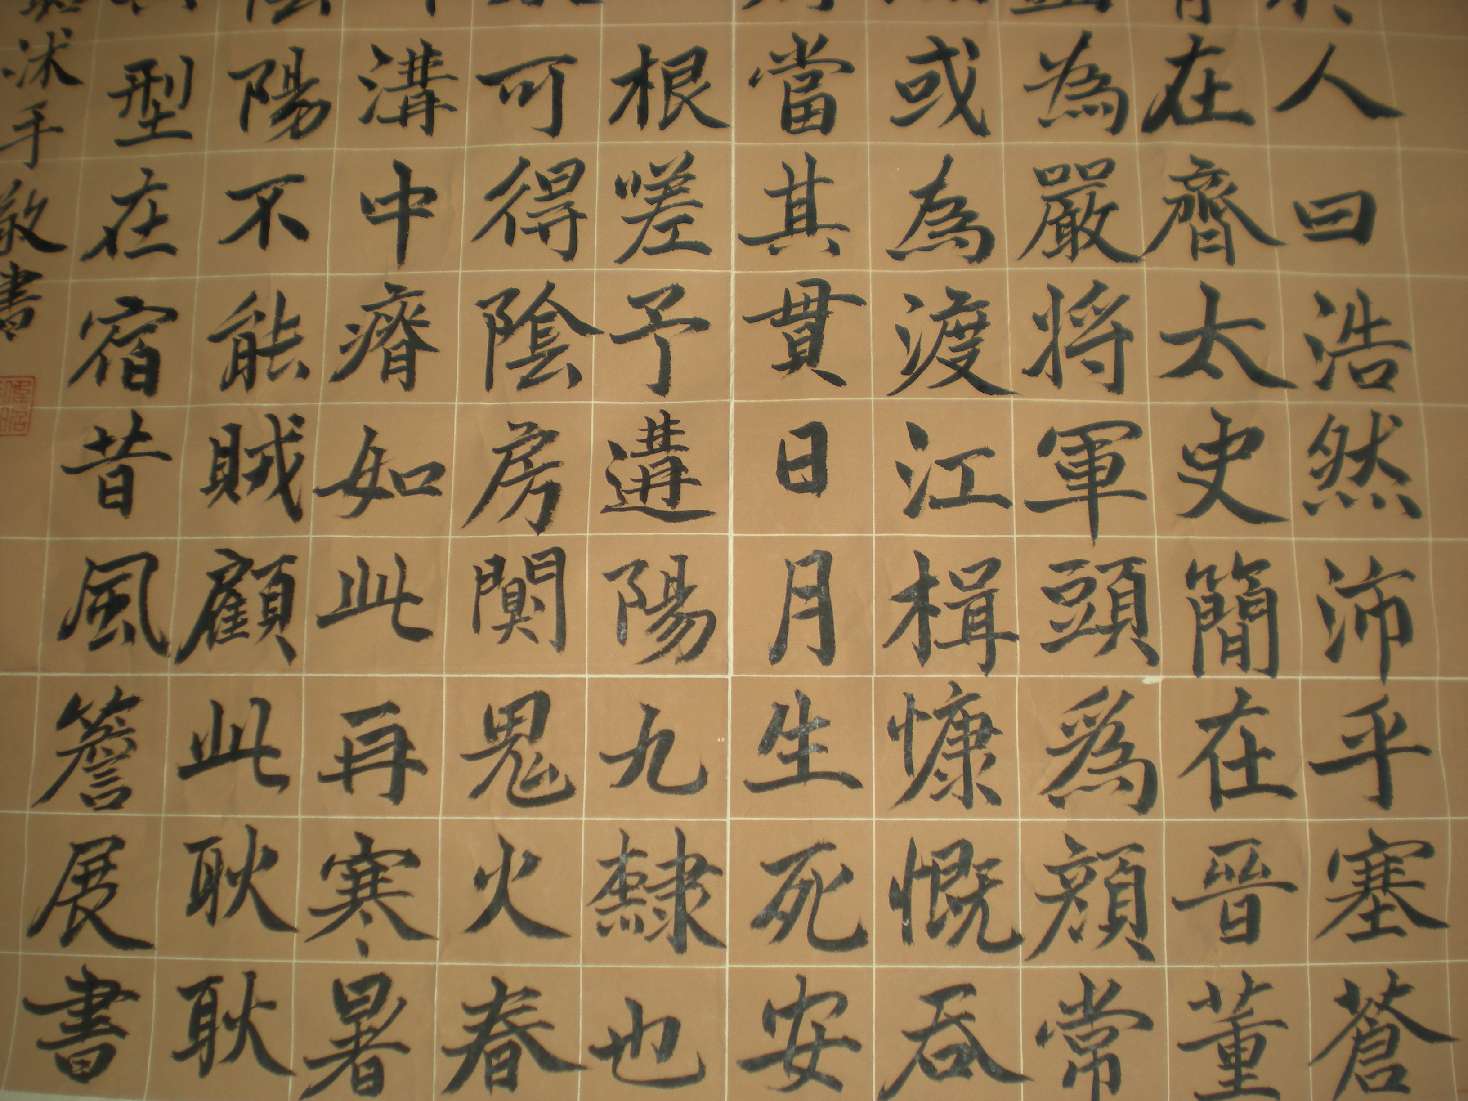 人曰浩然沛乎塞蒼
在齊太史簡在晉董
為嚴將軍頭爲顏常
或為渡江楫慷慨吞
當其貫日月生死安
根嗟予遘陽九隸也
可得陰房闃鬼火春
溝中瘠如此再寒暑
陽不能賊顧此耿耿
型在宿昔風簷展書
沐手敬書